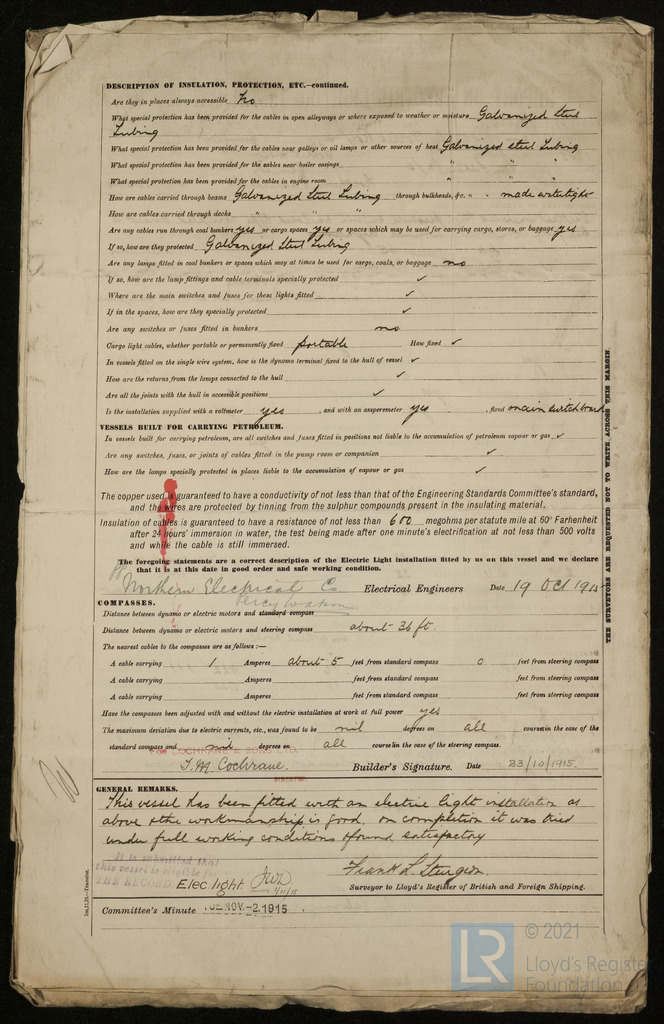 DESCRIPTION OF INSULATION, PROTECTION, ETC.—continued.
Are they in places always accessible No
What special protection has been provided for the cables in open alleyways or where exposed to weather or moisture Galvanized Steel
Tubing
What special protection has been provided for the cables near galleys or oil lamps or other sources of heat Galvanized steel Tubing
What special protection has been provided for the cables near boiler casings " " "
What special protection has been provided for the cables in engine room " " "
How are cables carried through beams Galvanized Steel Tubing through bulkheads, &c. " " made watertight
How are cables carried through decks " " "
Are any cables run through coal bunkers yes or cargo spaces yes or spaces which may be used for carrying cargo, stores, or baggage yes
If so, how are they protected Galvanized Steel Tubing
Are any lamps fitted in coal bunkers or spaces which may at times be used for cargo, coals, or baggage no
If so, how are the lamp fittings and cable terminals specially protected ✓
Where are the main switches and fuses for these lights fitted ✓
If in the spaces, how are they specially protected ✓
Are any switches or fuses fitted in bunkers no
Cargo light cables, whether portable or permanently fixed portable How fixed ✓
In vessels fitted on the single wire system, how is the dynamo terminal fixed to the hull of vessel ✓
How are the returns from the lamps connected to the hull ✓
Are all the joints with the hull in accessible positions ✓
Is the installation supplied with a voltmeter yes , and with an amperemeter yes , fixed main switch board
VESSELS BUILT FOR CARRYING PETROLEUM.
In vessels built for carrying petroleum, are all switches and fuses fitted in positions not liable to the accumulation of petroleum vapour or gas ✓
Are any switches, fuses, or joints of cables fitted in the pump room or companion ✓
How are the lamps specially protected in places liable to the accumulation of vapour or gas ✓
The copper used is guaranteed to have a conductivity of not less than that of the Engineering Standards Committee's standard,
and the wires are protected by tinning from the sulphur compounds present in the insulating material.
Insulation of cables is guaranteed to have a resistance of not less than 600 megohms per statute mile at 60° Farhenheit
after 24 hours' immersion in water, the test being made after one minute's electrification at not less than 500 volts
and while the cable is still immersed.
The foregoing statements are a correct description of the Electric Light installation fitted by us on this vessel and we declare
that it is at this date in good order and safe working condition.
Northern Electrical Co Electrical Engineers Date 19 Oct 1915
COMPASSES.
Distance between dynamo or electric motors and standard compass
Distance between dynamo or electric motors and steering compass about 36 ft.
The nearest cables to the compasses are as follows:—
A cable carrying 1 Amperes about 5 feet from standard compass 0 feet from steering compass
A cable carrying Amperes feet from standard compass feet from steering compass
A cable carrying Amperes feet from standard compass feet from steering compass
Have the compasses been adjusted with and without the electric installation at work at full power yes
The maximum deviation due to electric currents, etc., was found to be nil degrees on all courses in the case of the
standard compass and nil degrees on all courses in the case of the steering compass.
FOR COCHRANE & SONS LTD.
T. M. Cochrane. Builder's Signature. Date 23/10/1915.
GENERAL REMARKS.
This vessel has been fitted with an electric light installation as
above & the workmanship is good. On completion it was tried
under full working conditions & found satisfactory
It is submitted that
this vessel is eligible for
THE RECORD Elec light JWD
Frank L. Sturgeon.
Surveyor to Lloyd's Register of British and Foreign Shipping.
Committee's Minute TUE. NOV. -2. 1915
THE SURVEYORS ARE REQUESTED NOT TO WRITE ACROSS THIS MARGIN.
LR
© 2021
Lloyd's Register
Foundation